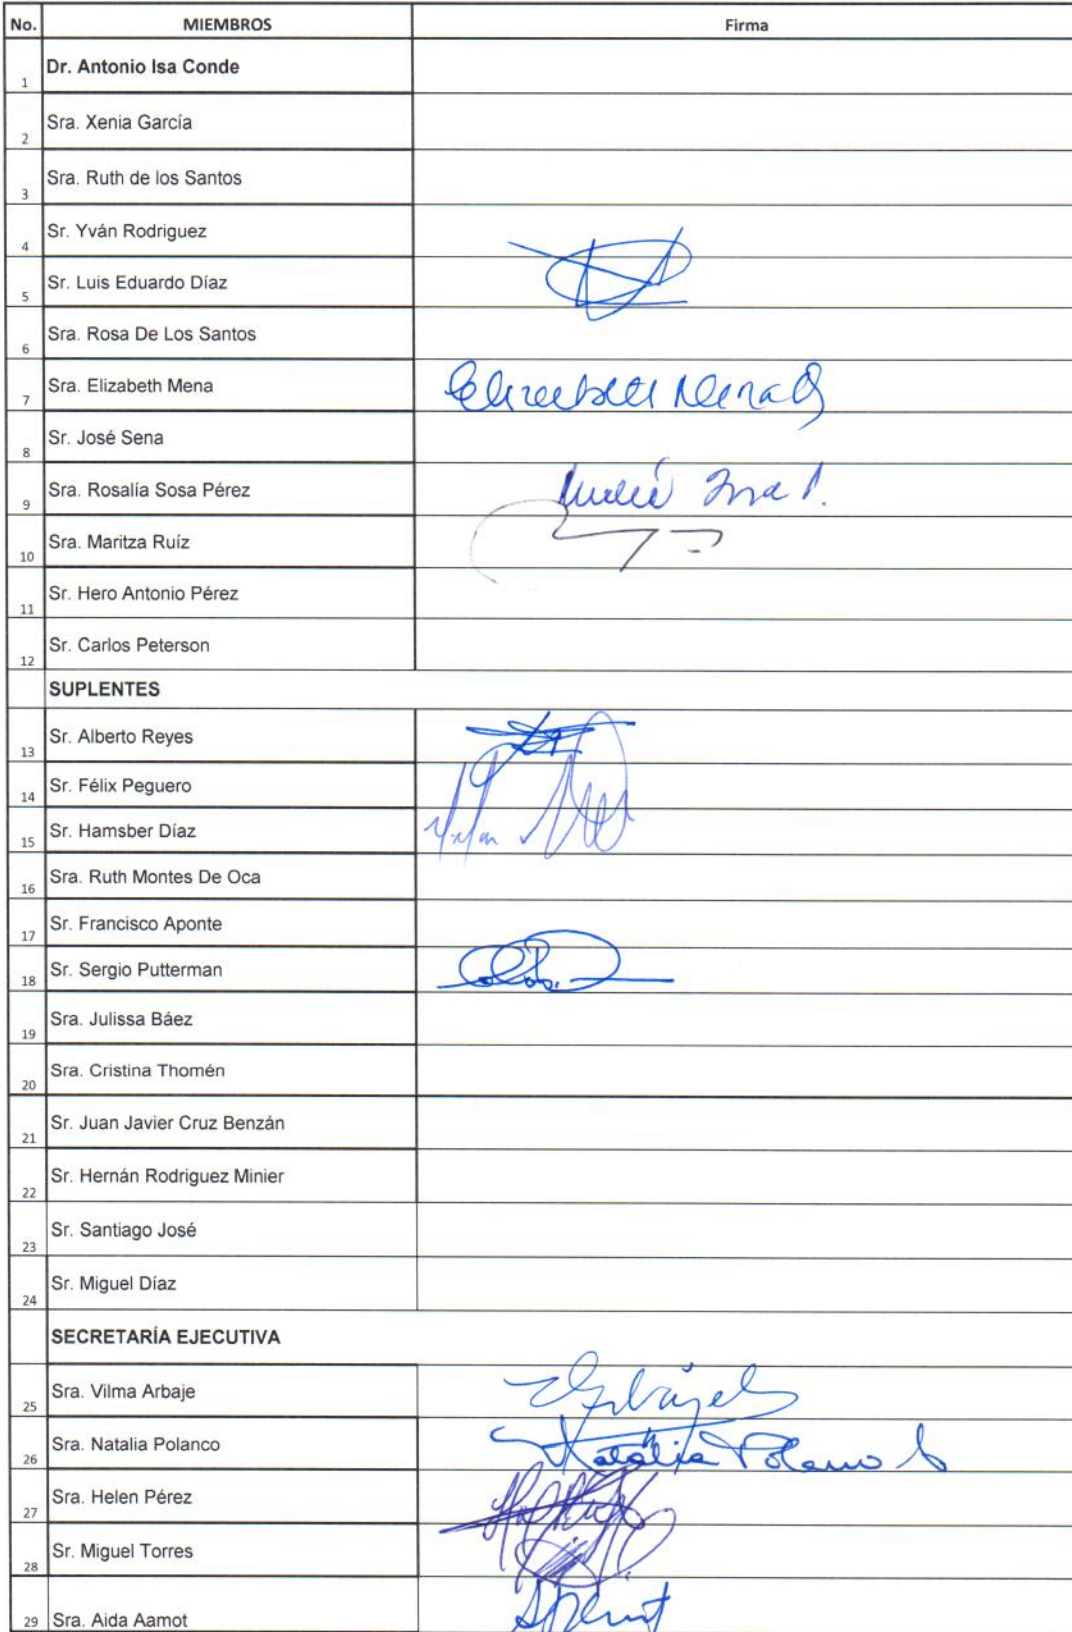 No. MIEMBROS Firma
1 Dr. Antonio Isa Conde
2 Sra. Xenia García
3 Sra. Ruth de los Santos
4 Sr. Yván Rodriguez
5 Sr. Luis Eduardo Díaz
6 Sra. Rosa De Los Santos
7 Sra. Elizabeth Mena Elizabeth Mena
8 Sr. José Sena
9 Sra. Rosalía Sosa Pérez
10 Sra. Maritza Ruíz
11 Sr. Hero Antonio Pérez
12 Sr. Carlos Peterson
SUPLENTES
13 Sr. Alberto Reyes
14 Sr. Félix Peguero
15 Sr. Hamsber Díaz
16 Sra. Ruth Montes De Oca
17 Sr. Francisco Aponte
18 Sr. Sergio Putterman
19 Sra. Julissa Báez
20 Sra. Cristina Thomén
21 Sr. Juan Javier Cruz Benzán
22 Sr. Hernán Rodriguez Minier
23 Sr. Santiago José
24 Sr. Miguel Díaz
SECRETARÍA EJECUTIVA
25 Sra. Vilma Arbaje
26 Sra. Natalia Polanco Natalia Polanco
27 Sra. Helen Pérez
28 Sr. Miguel Torres
29 Sra. Aida Aamot